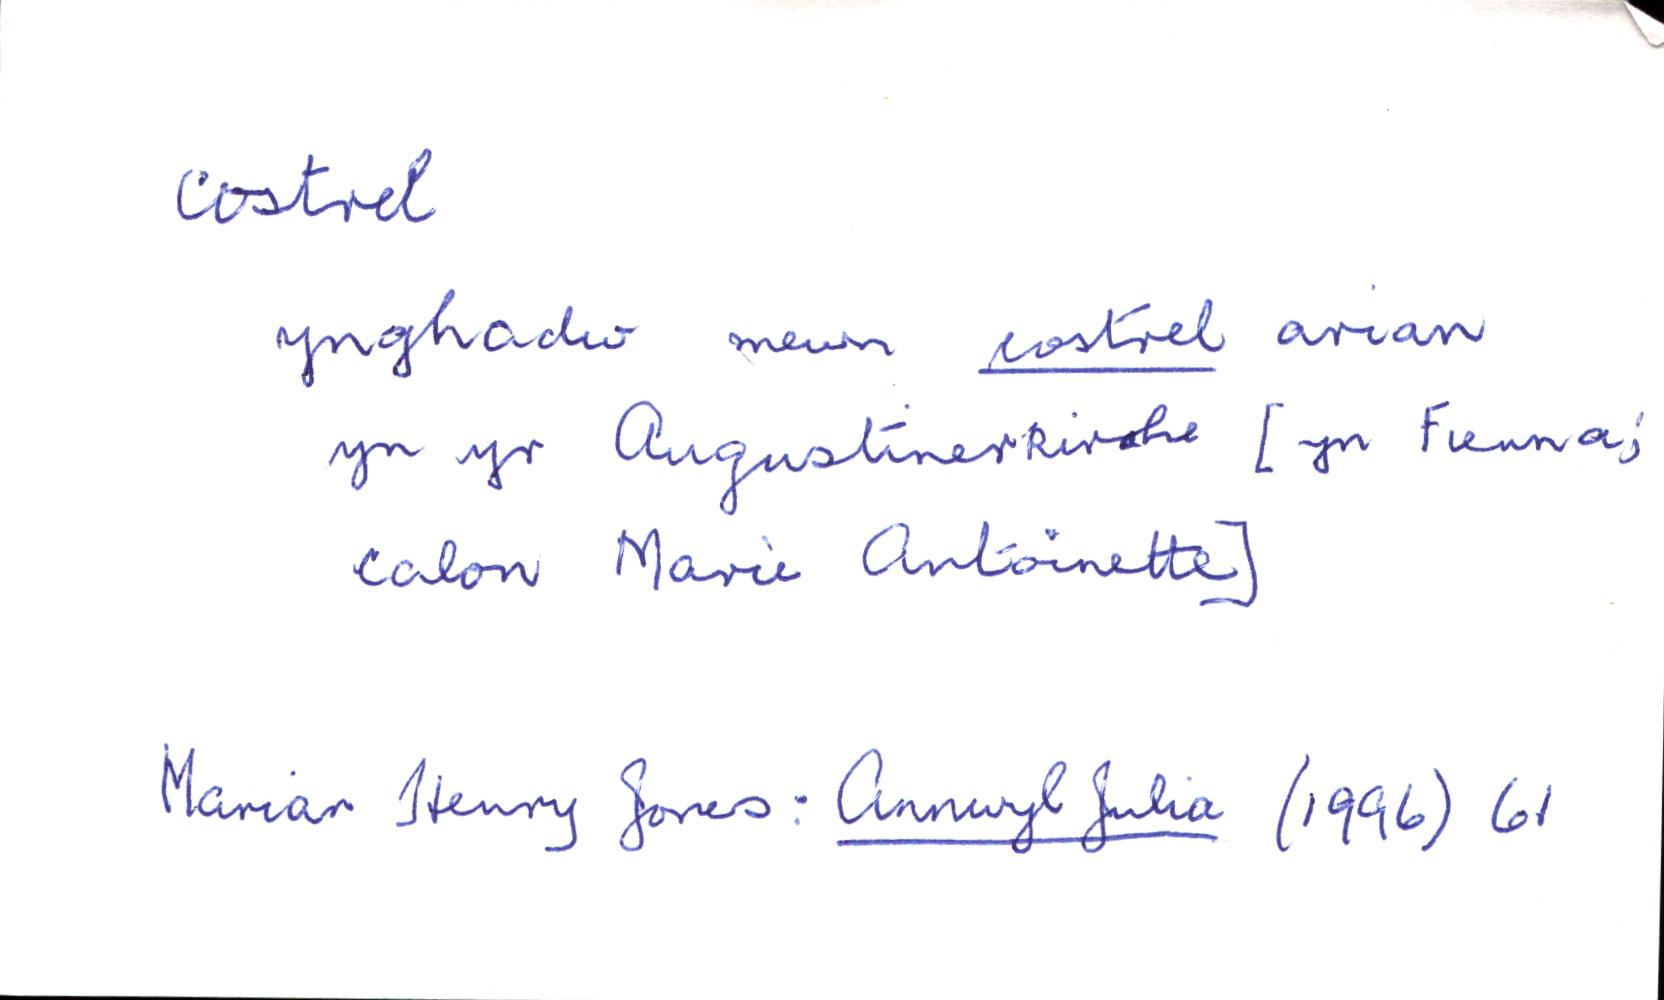 costrel
ynghadw mewn costrel arian
yn yr Augustinerkirche [yn Fienna;
calon Marie Antoinette]
Marian Henry Jones: Annwyl Julia (1996) 61